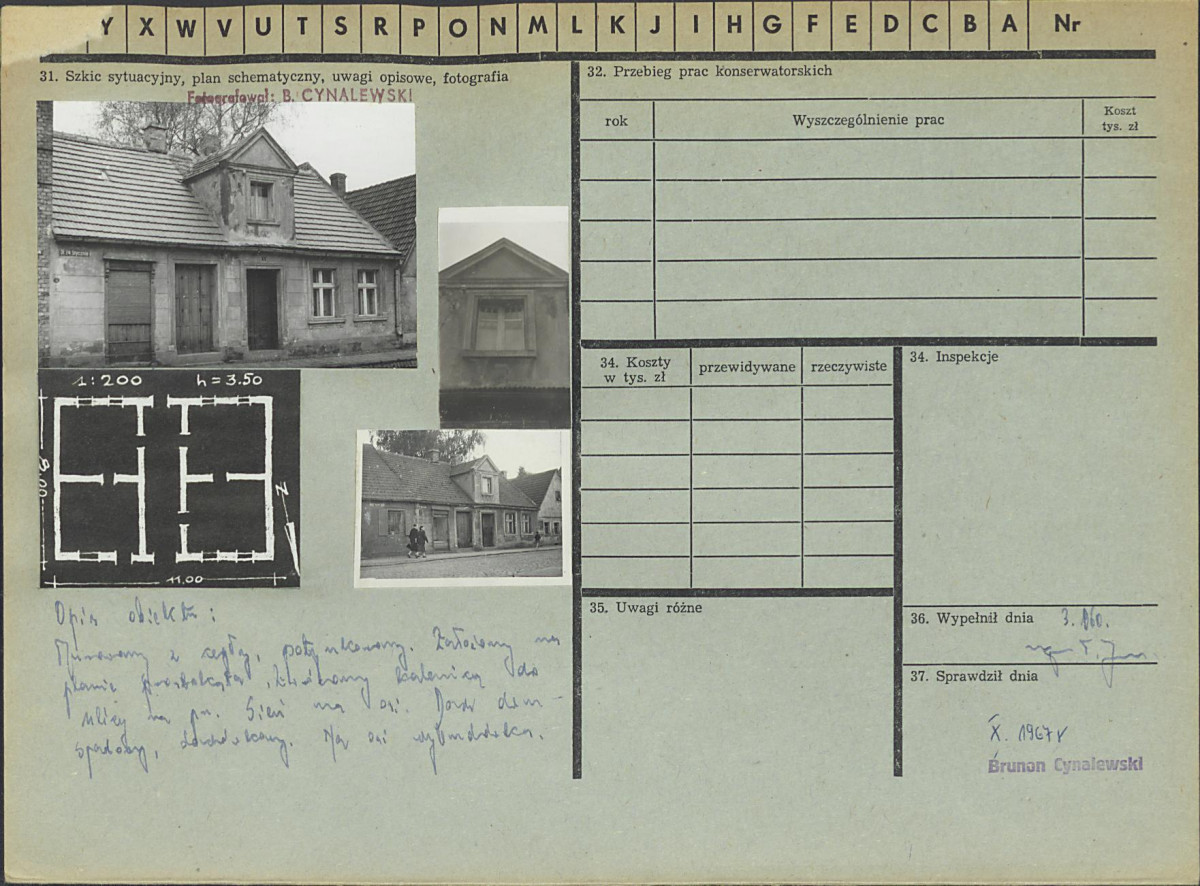 Y X W V U T S R P O N M L K J I H G F E D C B A Nr
31. Szkic sytuacyjny, plan schematyczny, uwagi opisowe, fotografia
Fotografował: B. CYNALEWSKI
1:200 h = 3.50
8.00
N
11.00
Opis obiektu:
Murowany z cegły, potynkowany. Założony na
planie prostokąta, zwrócony kalenicą do
ulicy na pn. Sień na osi. Dach dwu-
spadowy, dachówkowy. Na osi wystawka.
32. Przebieg prac konserwatorskich
rok Wyszczególnienie prac Koszt
tys. zł
34. Koszty
w tys. zł
przewidywane rzeczywiste
34. Inspekcje
35. Uwagi różne
36. Wypełnił dnia
mgr
37. Sprawdził dnia
X. 1967 r
Brunon Cynalewski